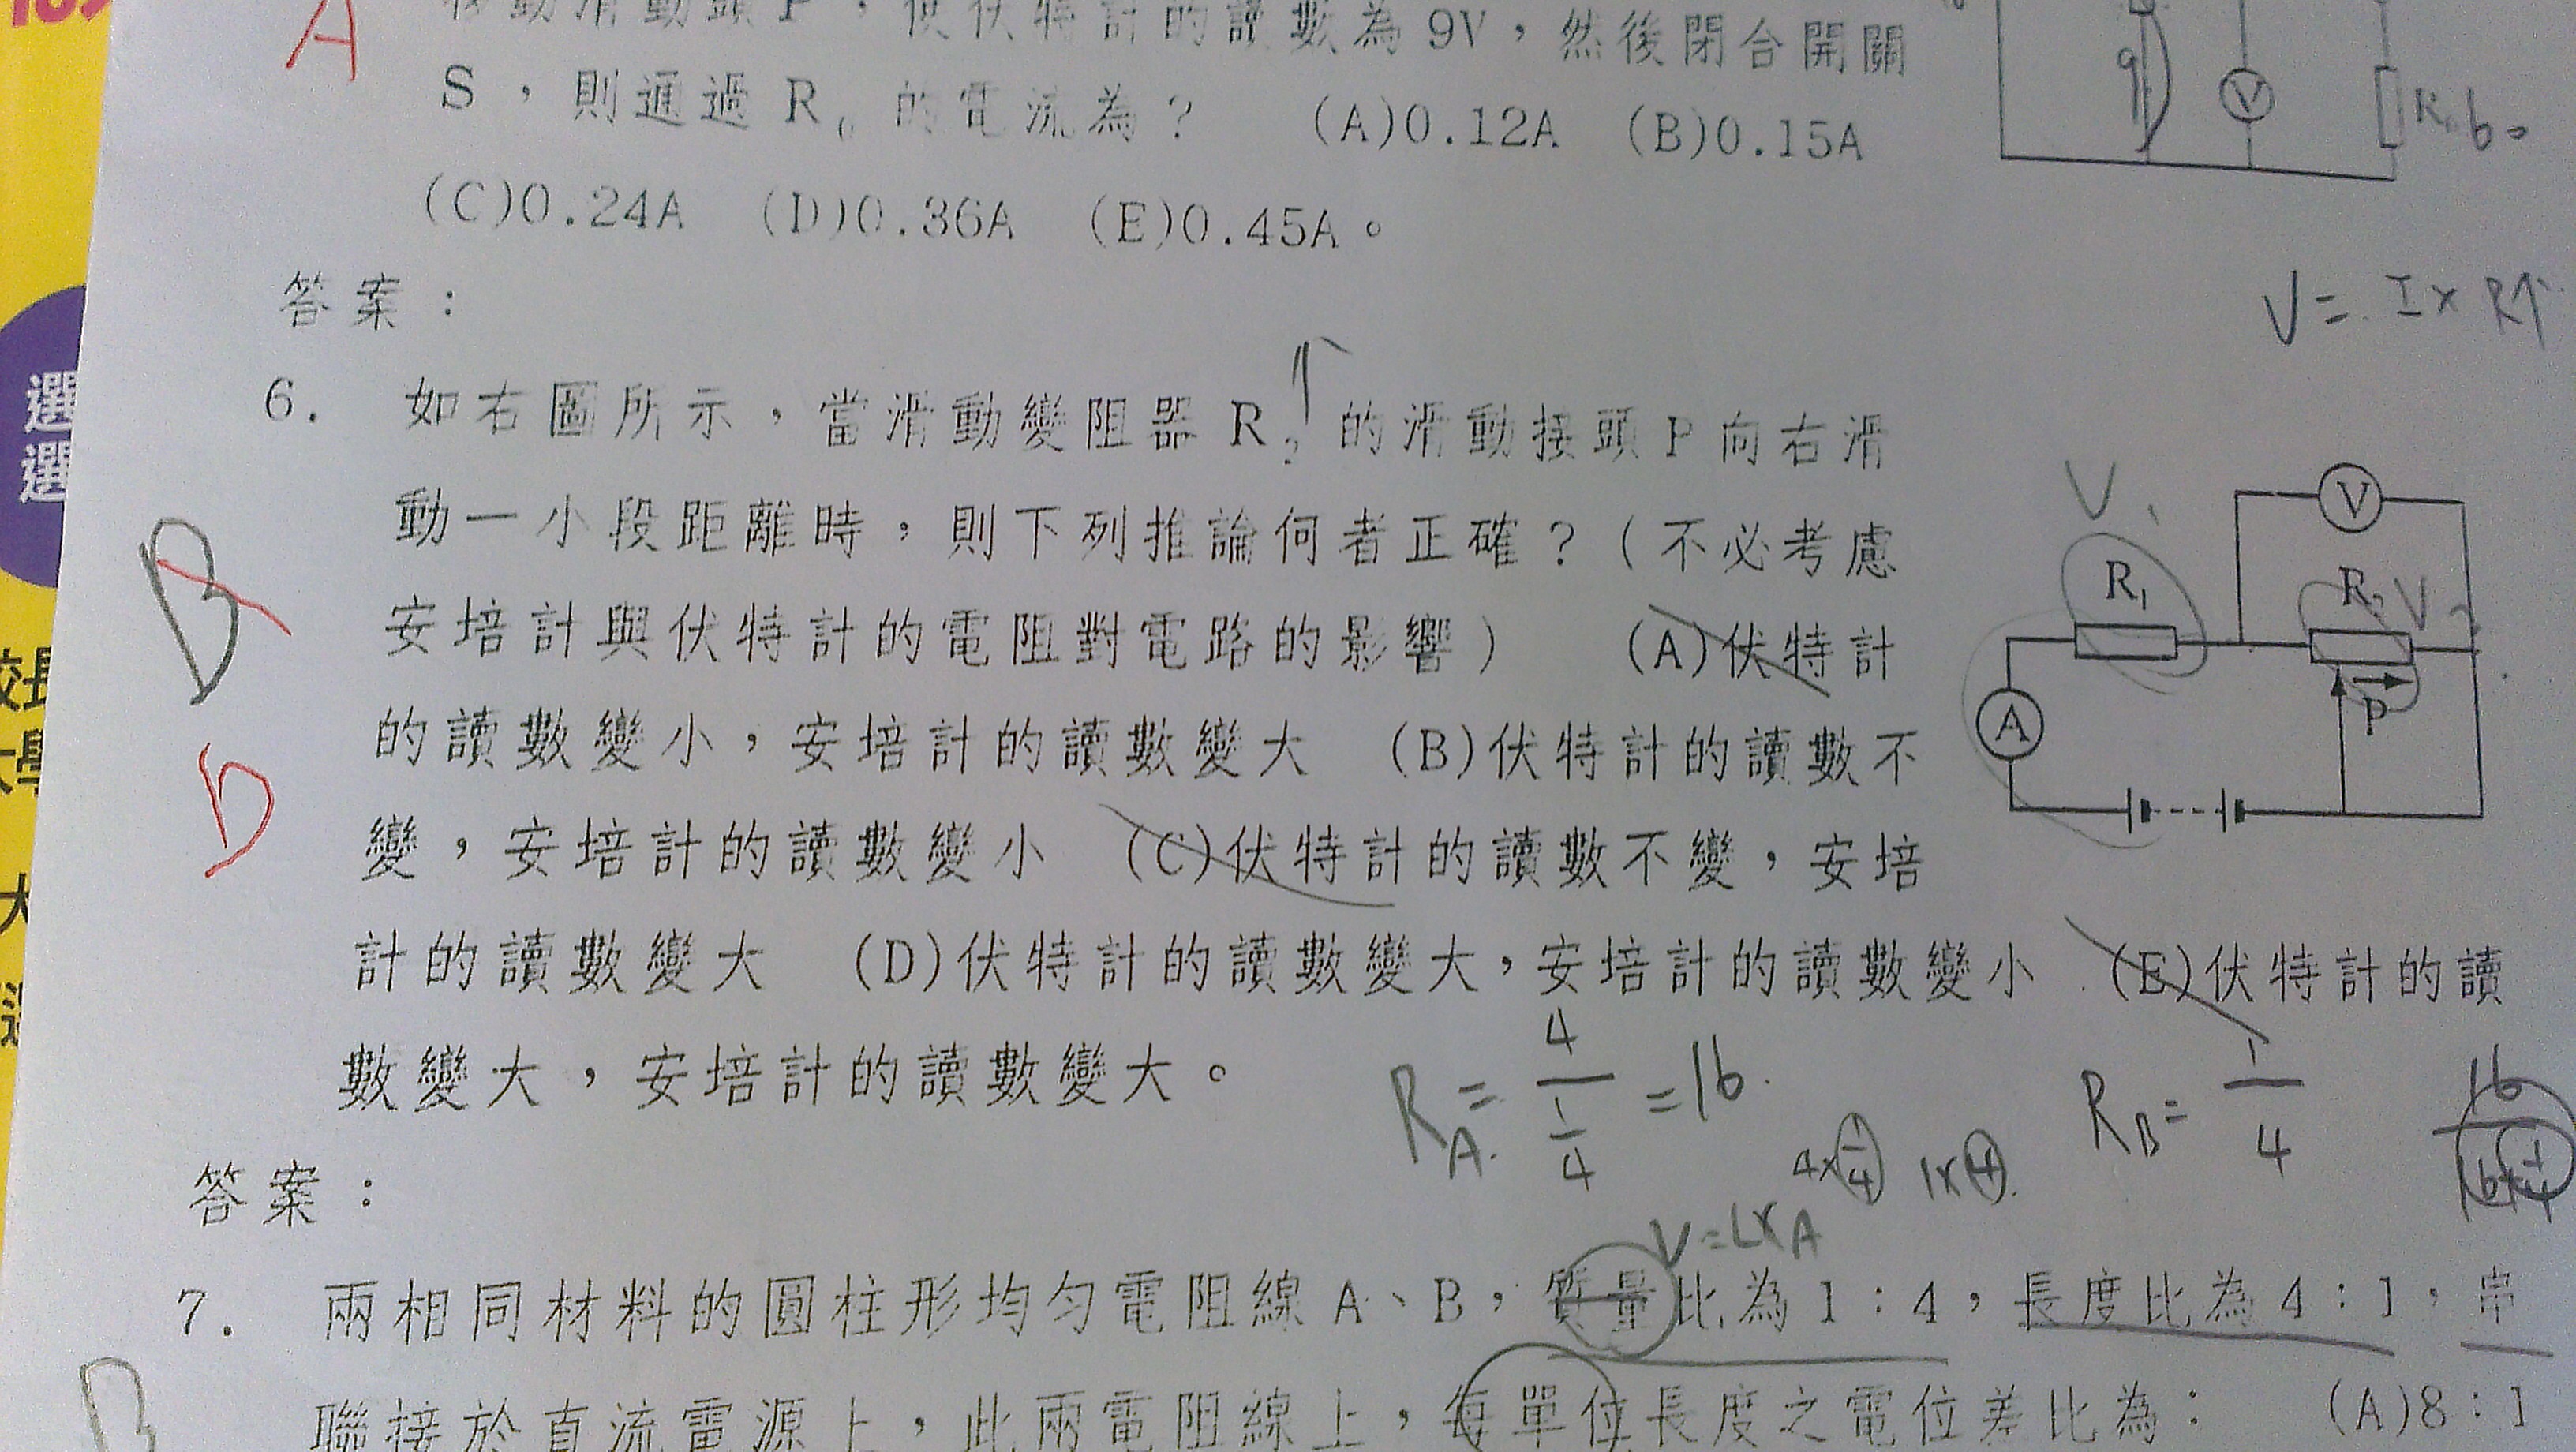 A
移動滑動頭P，使伏特計的讀數為9V，然後閉合開關
S，則通過R₀的電流為？ (A)0.12A (B)0.15A
(C)0.24A (D)0.36A (E)0.45A。
9
V
R₀ 60
答案：
V= I× R↑
6. 如右圖所示，當滑動變阻器R₂↑的滑動接頭P向右滑
動一小段距離時，則下列推論何者正確？(不必考慮
安培計與伏特計的電阻對電路的影響) (A)伏特計
的讀數變小，安培計的讀數變大 (B)伏特計的讀數不
變，安培計的讀數變小 (C)伏特計的讀數不變，安培
計的讀數變大 (D)伏特計的讀數變大，安培計的讀數變小 (E)伏特計的讀
數變大，安培計的讀數變大。
B
D
V₁
V
R₁
R₂ V₂
A
P
選
選
校長
大學
大
R_A = 4/(1/4) = 16
R_B = 1/4
16/(16×1/4)
4×1/4 1×4
V=L×A
答案：
7. 兩相同材料的圓柱形均勻電阻線A、B，質量比為1：4，長度比為4：1，串
聯接於直流電源上，此兩電阻線上，每單位長度之電位差比為： (A)8：1
B